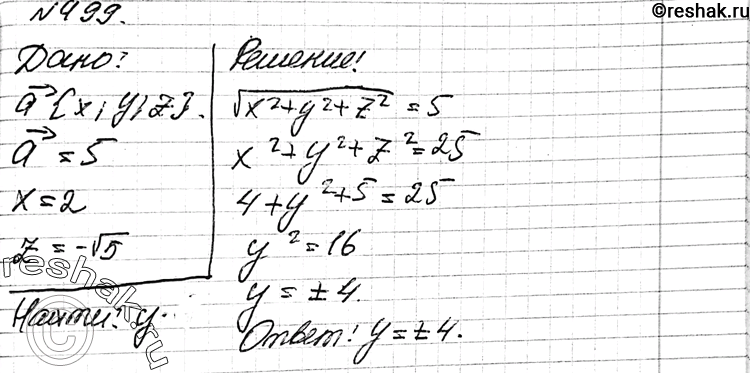 ©reshak.ru
№499.
Дано:
a⃗ {x; y; z}.
a⃗ = 5
x = 2
z = -√5
Найти: y.
Решение:
√x²+y²+z² = 5
x²+y²+z² = 25
4+y²+5 = 25
y² = 16
y = ±4.
Ответ: y = ±4.
reshak.ru
©